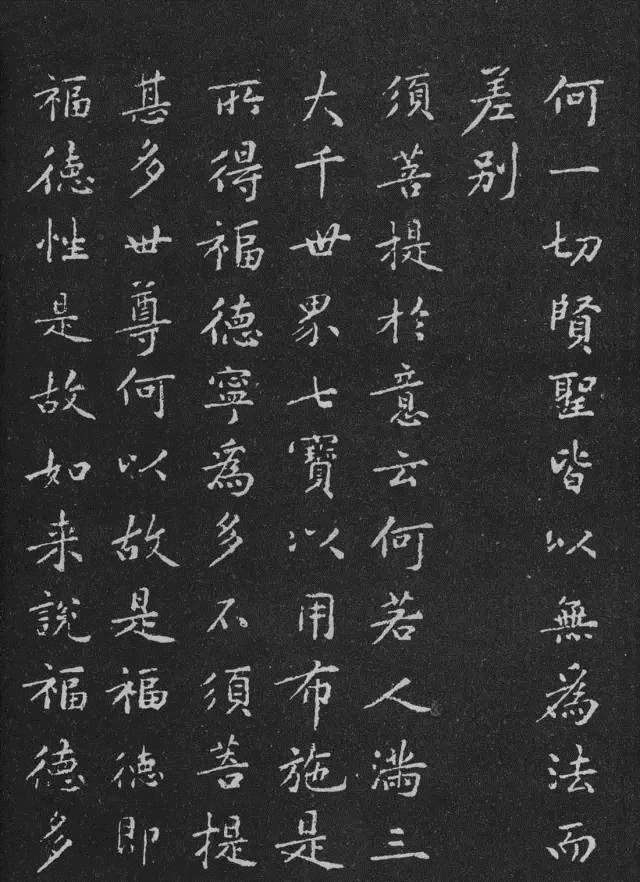 何一切賢聖皆以無為法而
差别
須菩提於意云何若人滿三
大千世界七寶以用布施是
所得福德寧為多不須菩提
甚多世尊何以故是福德即
福德性是故如来說福德多